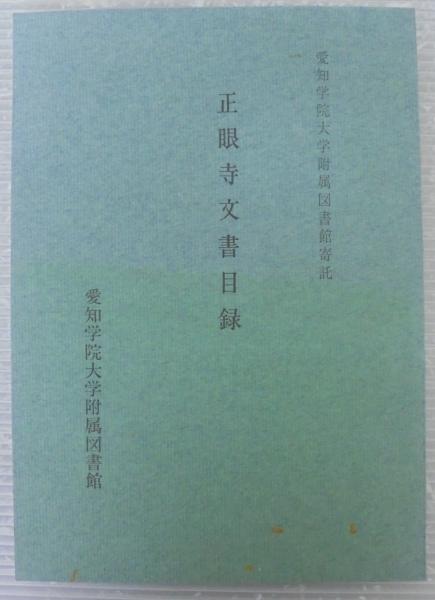 愛知学院大学附属図書館寄託
正眼寺文書目録
愛知学院大学附属図書館